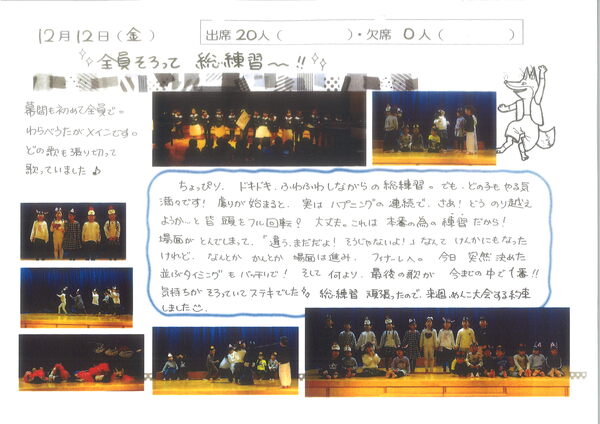 12月12日(金)
出席 20人( )・欠席 0人( )
全員そろって 総練習〜!!
幕間も初めて全員で。
わらべうたがメインです。
どの歌も張り切って
歌っていました♪
ちょっぴり、ドキドキ、ふわふわしながらの総練習。でも、どの子もやる気
満々です! 劇りが始まると、実はハプニングの連続で、さあ!どうのり越え
ようか…と皆 頭をフル回転? 大丈夫。これは本番の為の練習だから!
場面がとんでしまって、「違う、まだだよ!そうじゃないよ!」なんてけんかにもなった
けれど、なんとか かんとか 場面は進み、フィナーレへ。今日 突然 決めた
並ぶタイミングもバッチリで! そして何より、最後の歌が 今までの中で1番!!
気持ちがそろっていてステキでした。総練習 頑張ったので、来週めんこ大会する約束
しました